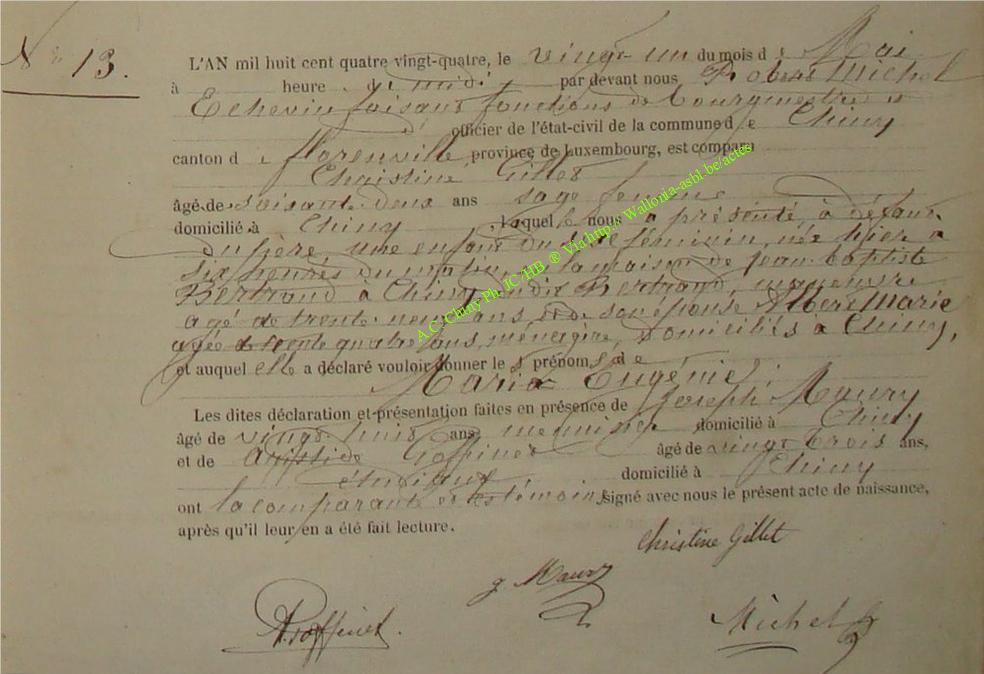 N° 13.
L'AN mil huit cent quatre vingt-quatre, le vingt un du mois de Mai
à heure de midi par devant nous Robert Michel
Echevin faisant fonctions de bourgmestre
officier de l'état-civil de la commune de Chiny
canton de florenville, province de Luxembourg, est comparu
Christine Gillet
âgé de soixante deux ans sage femme
domicilié à Chiny, laquelle nous a présenté, à défaut
du père, une enfant du sexe féminin, née hier à
six heures du matin, à la maison de Jean baptiste
Bertrand à Chiny, dudit Bertrand, manoeuvre
agé de trente neuf ans et de son épouse Albert Marie
agée de trente quatre ans, ménagère, domiciliés à Chiny,
et auquel elle a déclaré vouloir donner les prénoms de
Maria Eugénie.
Les dites déclaration et présentation faites en présence de Joseph Maury
âgé de vingt huit ans, menuisier domicilié à Chiny
et de Aristide Goffinet âgé de vingt trois ans,
étudiant domicilié à Chiny
ont la comparante et les témoins signé avec nous le présent acte de naissance,
après qu'il leur en a été fait lecture.
Christine Gillet
J. Maury
A. Goffinet.
Michel R
A.C. Chiny Ph. JC/HB ® Via http:// Wallonia-asbl.be/actes